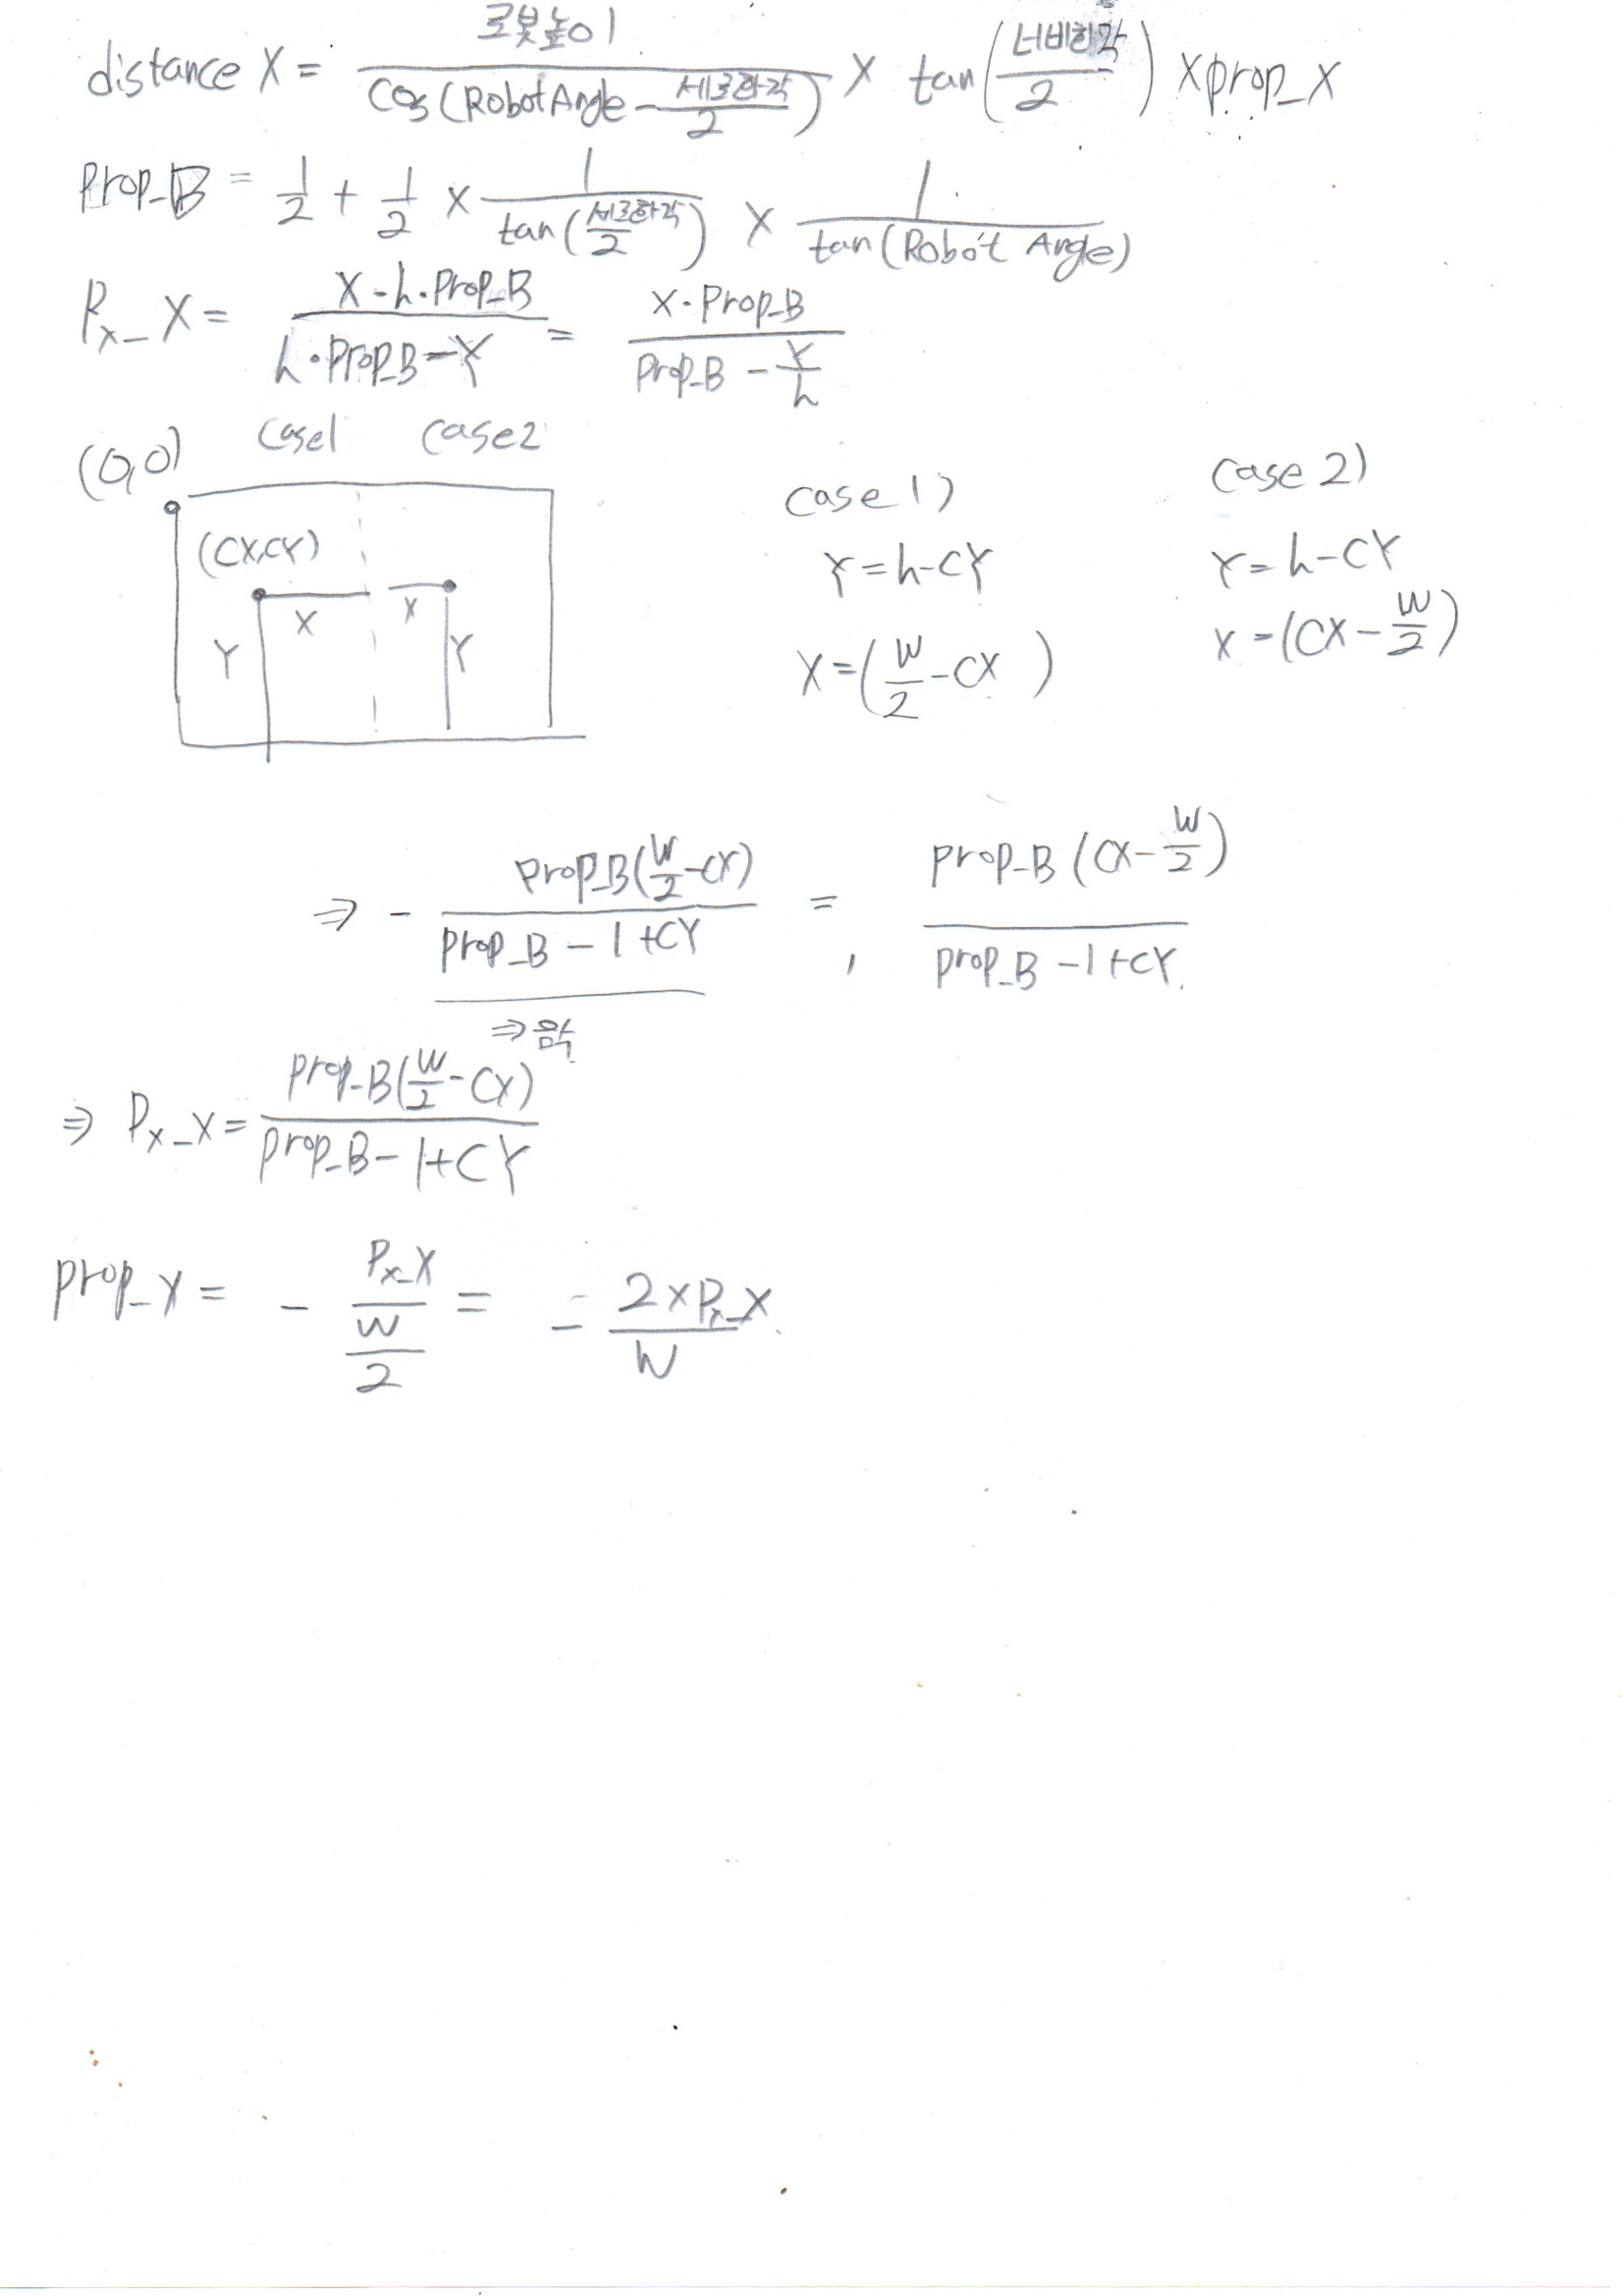 distance X = 로봇높이 / cos(RobotAngle - 세로화각/2) × tan(너비화각/2) × prop_X
Prop_B = 1/2 + 1/2 × 1/tan(세로화각/2) × 1/tan(Robot Angle)
Px_X = X·h·Prop_B / h·Prop_B-Y = X·Prop_B / Prop_B - Y/h
(0,0) case1 case2
(CX,CY)
X X
Y Y
case 1)
Y = h-CY
X = (W/2 - CX)
case 2)
Y = h-CY
X = (CX - W/2)
⇒ - prop_B(W/2 - CX) / prop_B - 1 + CY = , prop_B (CX - W/2) / prop_B - 1 + CY.
⇒
⇒ Px_X = prop_B(W/2 - CX) / prop_B - 1 + CY
prop_X = - Px_X / W/2 = - 2×Px_X / W